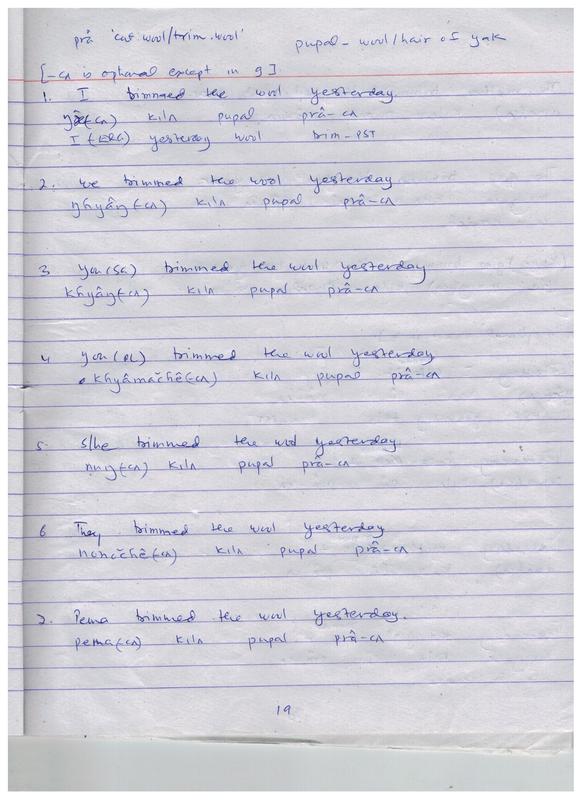 prâ 'cut wool/trim.wool' pupal - wool/hair of yak
[-cʌ is optional except in 9]
1. I trimmed the wool yesterday.
(-cʌ) kilʌ pupal prâ-cʌ
I (-ERG) yesterday wool trim-PST
2. we trimmed the wool yesterday
ŋhyâŋ(-cʌ) kilʌ pupal prâ-cʌ
3 you(SG) trimmed the wool yesterday
khyâŋ(-cʌ) kilʌ pupal prâ-cʌ
4 you (PL) trimmed the wool yesterday
khyâmačhê(-cʌ) kilʌ pupal prâ-cʌ
5. S/he trimmed the wool yesterday
(-cʌ) kilʌ pupal prâ-cʌ
6 They trimmed the wool yesterday
nončhê(-cʌ) kilʌ pupal prâ-cʌ.
7. Pema trimmed the wool yesterday.
pema(-cʌ) kilʌ pupal prâ-cʌ
19